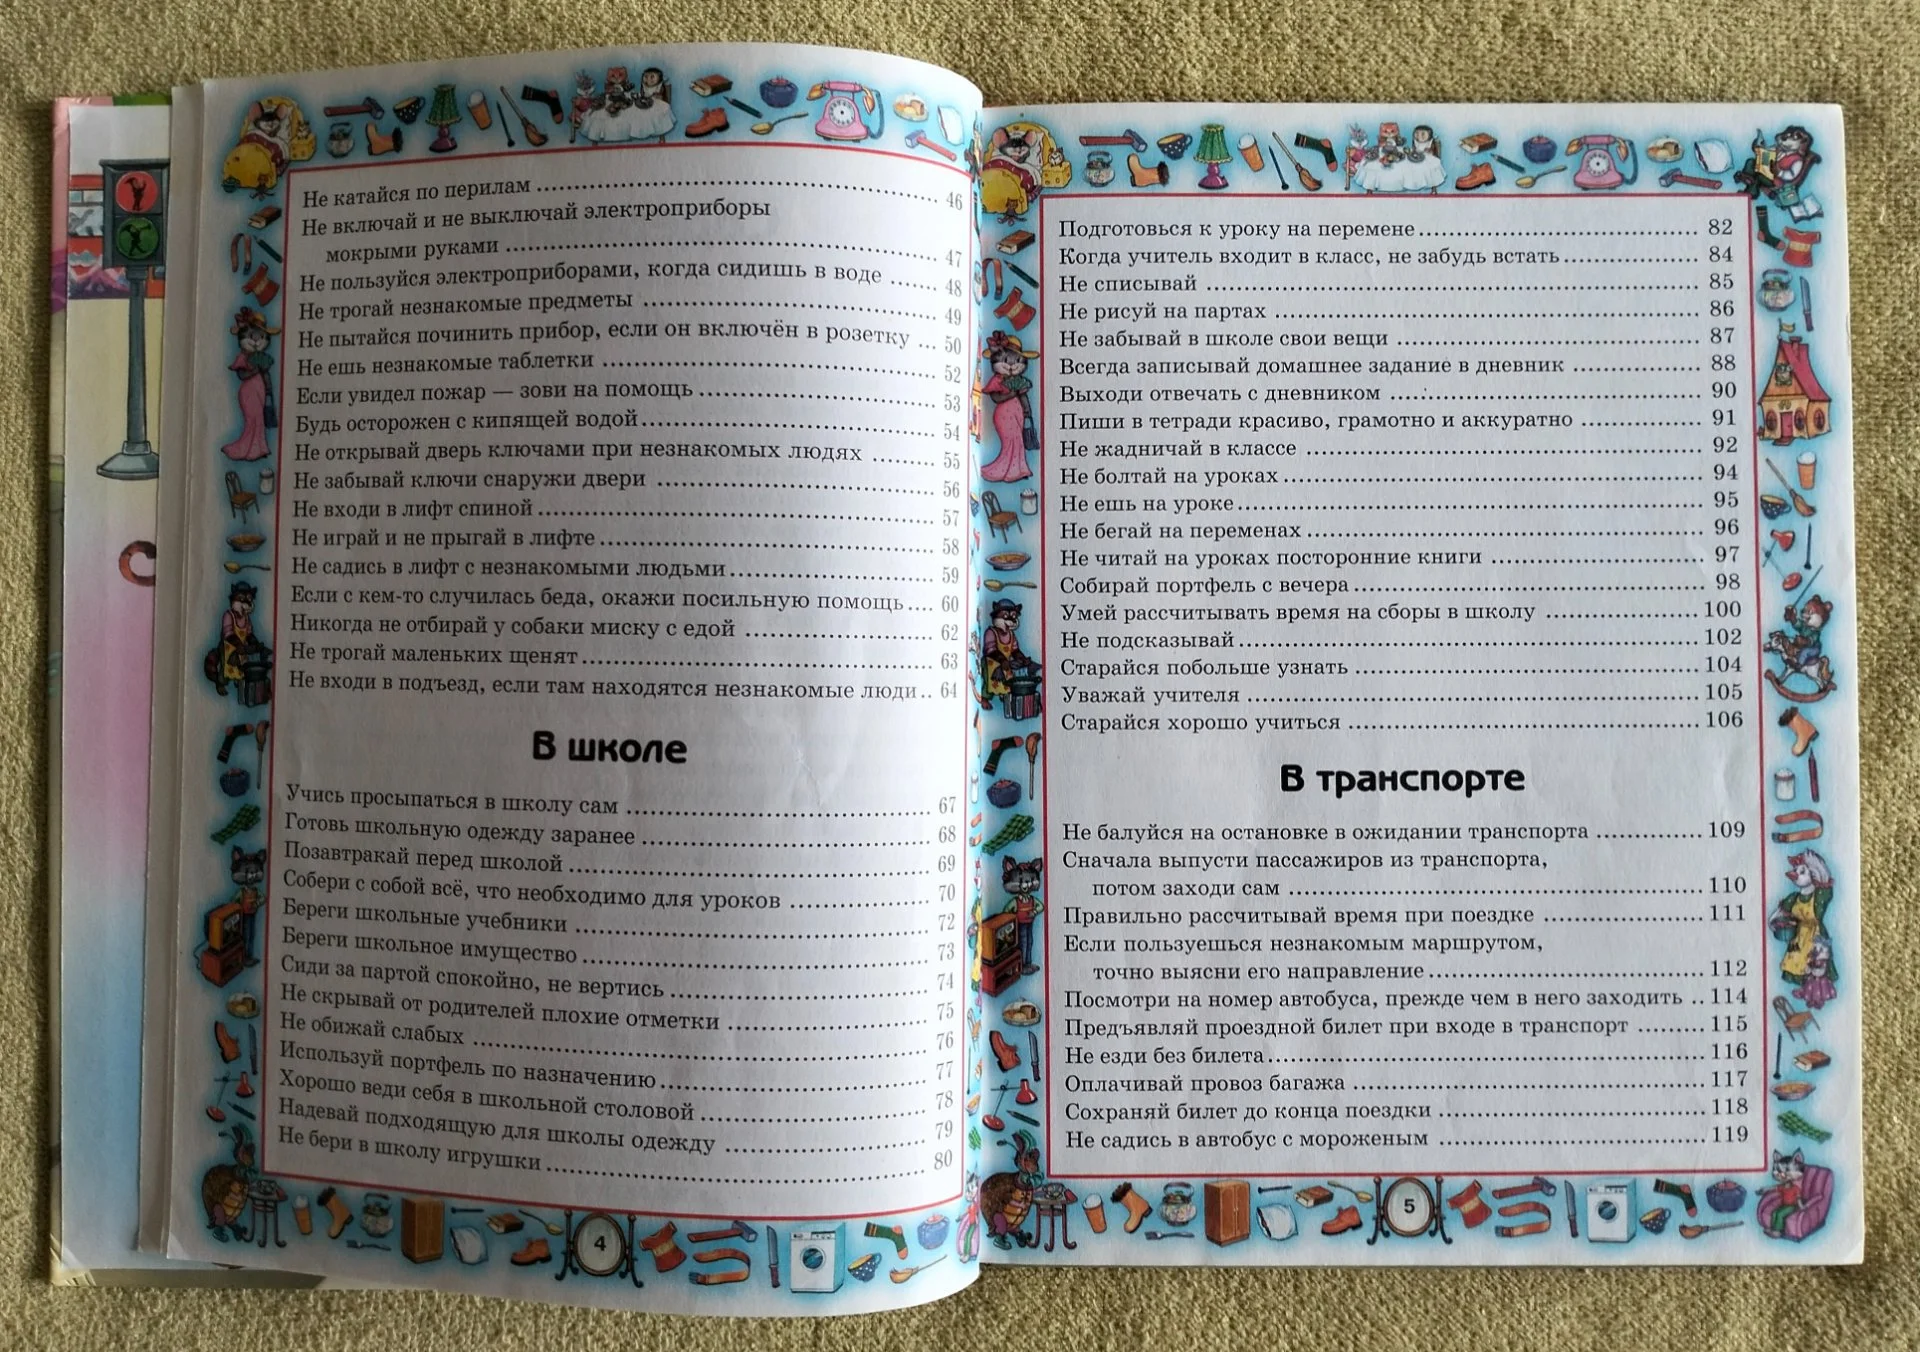 Не катайся по перилам ........ 46
Не включай и не выключай электроприборы
мокрыми руками ........ 47
Не пользуйся электроприборами, когда сидишь в воде ....... 48
Не трогай незнакомые предметы ........ 49
Не пытайся починить прибор, если он включён в розетку ... 50
Не ешь незнакомые таблетки ........ 52
Если увидел пожар — зови на помощь ........ 53
Будь осторожен с кипящей водой ........ 54
Не открывай дверь ключами при незнакомых людях ......... 55
Не забывай ключи снаружи двери ........ 56
Не входи в лифт спиной ........ 57
Не играй и не прыгай в лифте ........ 58
Не садись в лифт с незнакомыми людьми ........ 59
Если с кем-то случилась беда, окажи посильную помощь .... 60
Никогда не отбирай у собаки миску с едой ........ 62
Не трогай маленьких щенят ........ 63
Не входи в подъезд, если там находятся незнакомые люди .. 64
В школе
Учись просыпаться в школу сам ........ 67
Готовь школьную одежду заранее ........ 68
Позавтракай перед школой ........ 69
Собери с собой всё, что необходимо для уроков ........ 70
Береги школьные учебники ........ 72
Береги школьное имущество ........ 73
Сиди за партой спокойно, не вертись ........ 74
Не скрывай от родителей плохие отметки ........ 75
Не обижай слабых ........ 76
Используй портфель по назначению ........ 77
Хорошо веди себя в школьной столовой ........ 78
Надевай подходящую для школы одежду ........ 79
Не бери в школу игрушки ........ 80
4
Подготовься к уроку на перемене ........ 82
Когда учитель входит в класс, не забудь встать ........ 84
Не списывай ........ 85
Не рисуй на партах ........ 86
Не забывай в школе свои вещи ........ 87
Всегда записывай домашнее задание в дневник ........ 88
Выходи отвечать с дневником ........ 90
Пиши в тетради красиво, грамотно и аккуратно ........ 91
Не жадничай в классе ........ 92
Не болтай на уроках ........ 94
Не ешь на уроке ........ 95
Не бегай на переменах ........ 96
Не читай на уроках посторонние книги ........ 97
Собирай портфель с вечера ........ 98
Умей рассчитывать время на сборы в школу ........ 100
Не подсказывай ........ 102
Старайся побольше узнать ........ 104
Уважай учителя ........ 105
Старайся хорошо учиться ........ 106
В транспорте
Не балуйся на остановке в ожидании транспорта ........ 109
Сначала выпусти пассажиров из транспорта,
потом заходи сам ........ 110
Правильно рассчитывай время при поездке ........ 111
Если пользуешься незнакомым маршрутом,
точно выясни его направление ........ 112
Посмотри на номер автобуса, прежде чем в него заходить .. 114
Предъявляй проездной билет при входе в транспорт ........ 115
Не езди без билета ........ 116
Оплачивай провоз багажа ........ 117
Сохраняй билет до конца поездки ........ 118
Не садись в автобус с мороженым ........ 119
5